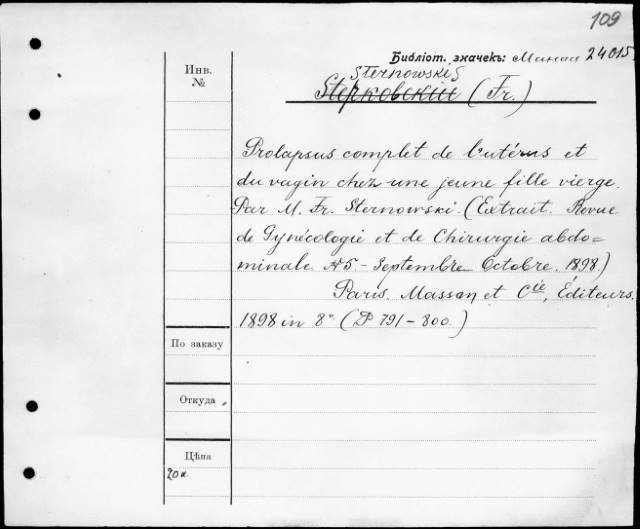 109
Библіот. значекъ: 24015
Инв.
№
Sternowski
Sterковскій (Fr.)
Prolapsus complet de l'utérus et
du vagin chez une jeune fille vierge.
Par M. Fr. Sternowski. (Extrait. Revue
de Gynécologie et de Chirurgie abdo=
minale. №5 - Septembre Octobre. 1898.)
Paris. Masson et Cie, Éditeurs.
1898 in 8° (P 791-800.)
По заказу
Откуда
Цѣна
20к